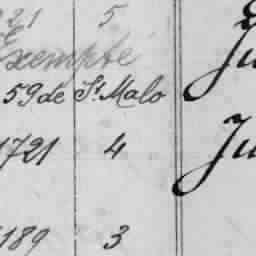 221 5
Exempté
59 de St. Malo
1721 4
189 3